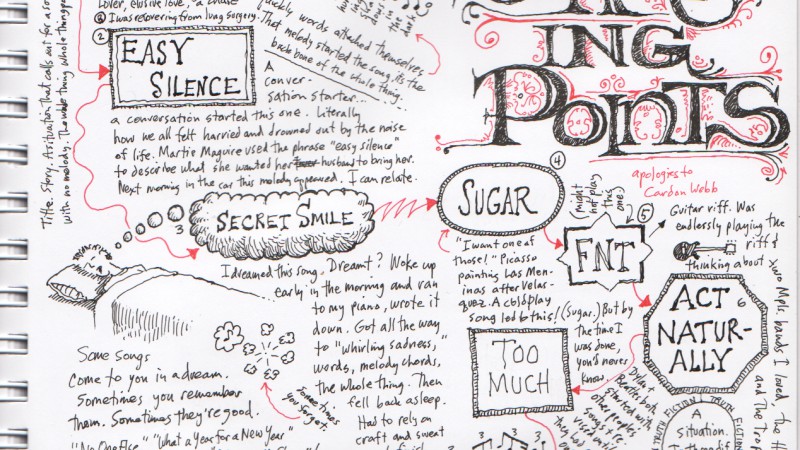 Lover, elusive love, "a
I was recovering from lung surgery.
quickly words attached themselves
That melody started the song. It's the
back bone of the whole thing.
ING
POINTS
apologies to
Title. Story. A situation that calls out for a
with no melody. The whole thing
2
EASY
SILENCE
A
conver-
sation starter...
a conversation started this one. Literally
how we all felt harried and drowned out by the noise
of life. Martie Maguire used the phrase "easy silence"
to describe what she wanted her husband to bring her.
Next morning in the car this melody appeared. I can relate.
3
SECRET SMILE
I dreamed this song. Dreamt? Woke up
early in the morning and ran
to my piano, wrote it
down. Got all the way
to "whirling sadness,"
words, melody, chords,
the whole thing. Then
fell back asleep.
Had to rely on
craft and sweat
Some songs
Come to you in a dream.
Sometimes you remember
them. Sometimes they're good.
"No One Else" "What a Year for a New Year"
Sometimes
you forget.
4
SUGAR
"I want one of
those!" Picasso
painting Las Men-
inas after Velas-
quez. A coldplay
song led to this! (Sugar.) But by
the time I
was done,
you'd never
know.
(might
not play
this
one)
5
FNT
Guitar riff. Was
endlessly playing the
riff &
thinking about
XMPLs, bands I loved. The
6
ACT
NATUR-
ALLY
TOO
MUCH
Beatles both
started with
other people's
songs & re-
TRUTH FICTION TRUTH FICTION
A
situation.
3 3 3